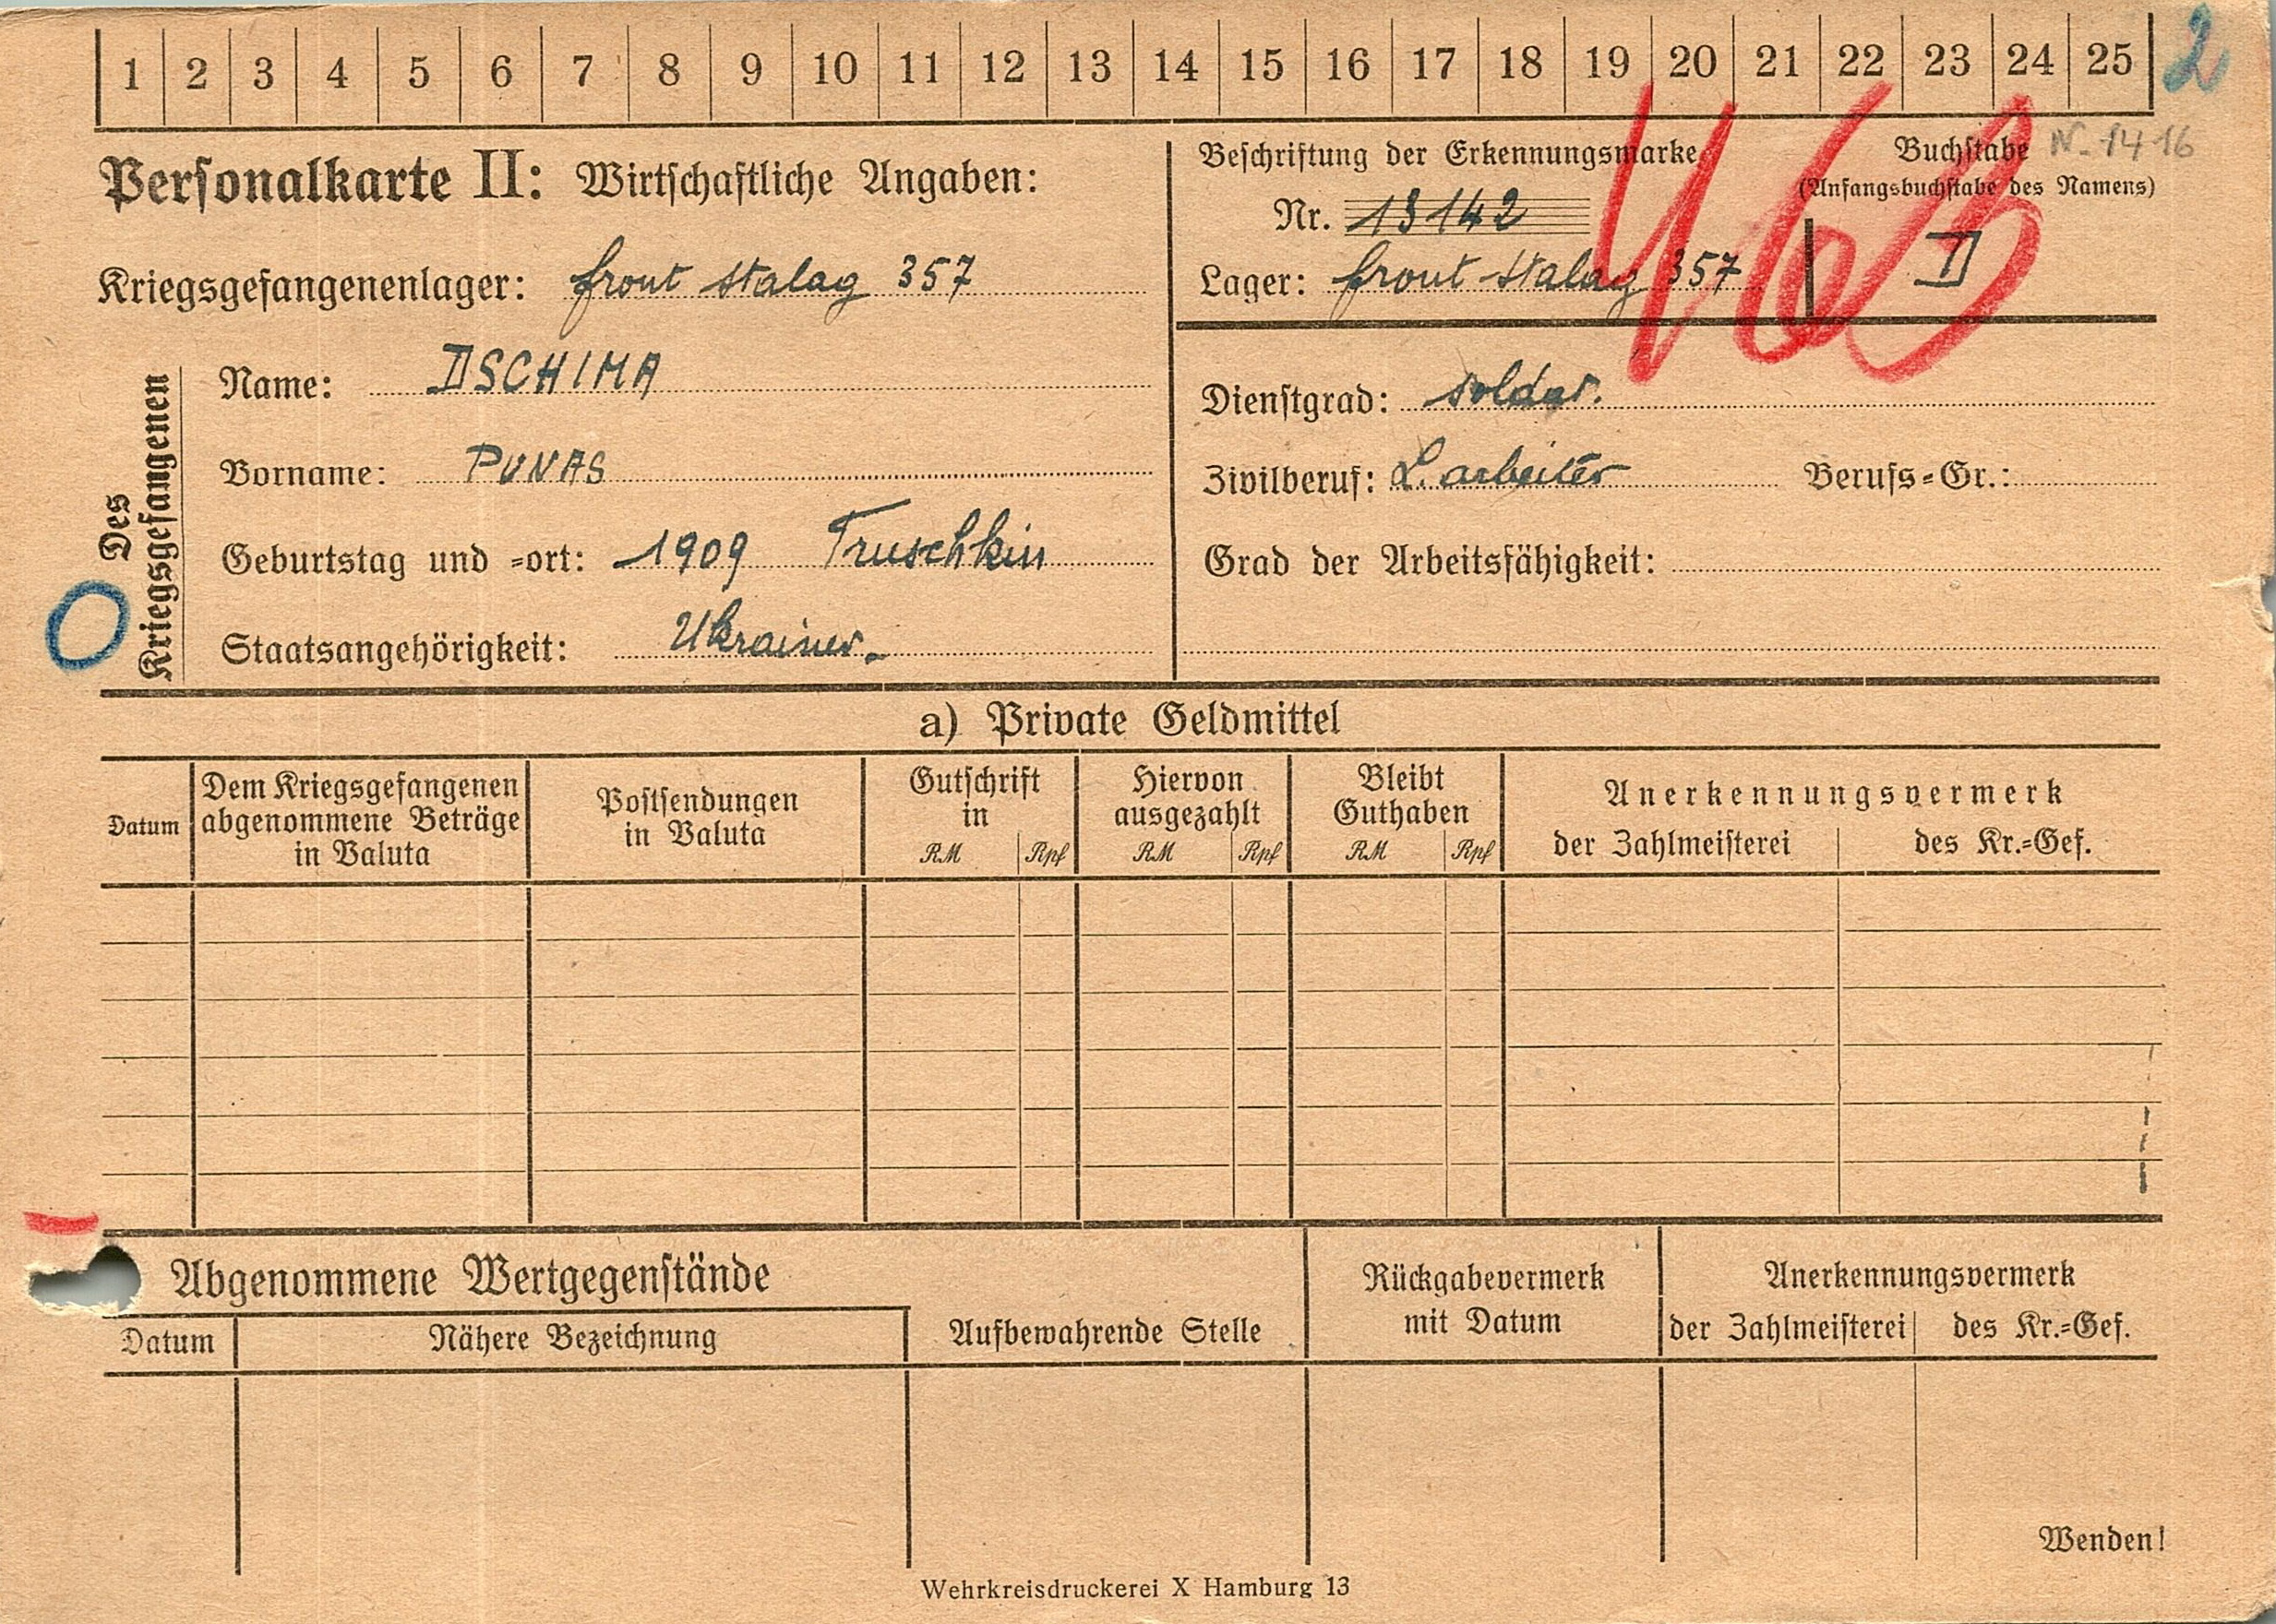 1 2 3 4 5 6 7 8 9 10 11 12 13 14 15 16 17 18 19 20 21 22 23 24 25 2
Personalkarte II: Wirtschaftliche Angaben:
Kriegsgefangenenlager: front stalag 357
Beschriftung der Erkennungsmarke
Nr. 13142
Lager: front stalag 357
Buchstabe N-1416
(Anfangsbuchstabe des Namens)
D
463
Des Kriegsgefangenen
Name: DSCHIMA
Vorname: PUNAS
Geburtstag und =ort: 1909 Truschkin
Staatsangehörigkeit: Ukrainer.
Dienstgrad: soldat.
Zivilberuf: L. arbeiter Berufs=Gr.:
Grad der Arbeitsfähigkeit:
a) Private Geldmittel
Datum
Dem Kriegsgefangenen
abgenommene Beträge
in Valuta
Postsendungen
in Valuta
Gutschrift
in
RM Rpf
Hiervon
ausgezahlt
RM Rpf
Bleibt
Guthaben
RM Rpf
Anerkennungsvermerk
der Zahlmeisterei des Kr.=Gef.
Abgenommene Wertgegenstände
Datum Nähere Bezeichnung
Aufbewahrende Stelle
Rückgabevermerk
mit Datum
Anerkennungsvermerk
der Zahlmeisterei des Kr.=Gef.
Wenden!
Wehrkreisdruckerei X Hamburg 13